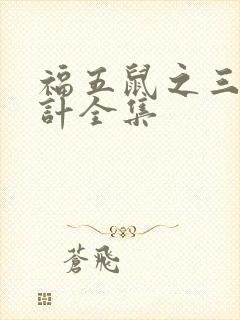 福五鼠之三
計全集
蒼飛